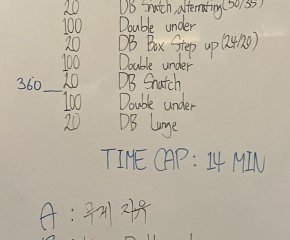 20 DB Snatch, alternating (50/35)
100 Double under
20 DB Box Step up (24/20)
100 Double under
360 20 DB Snatch
100 Double under
20 DB Lunge
TIME CAP: 14 MIN
A : 무게 자유